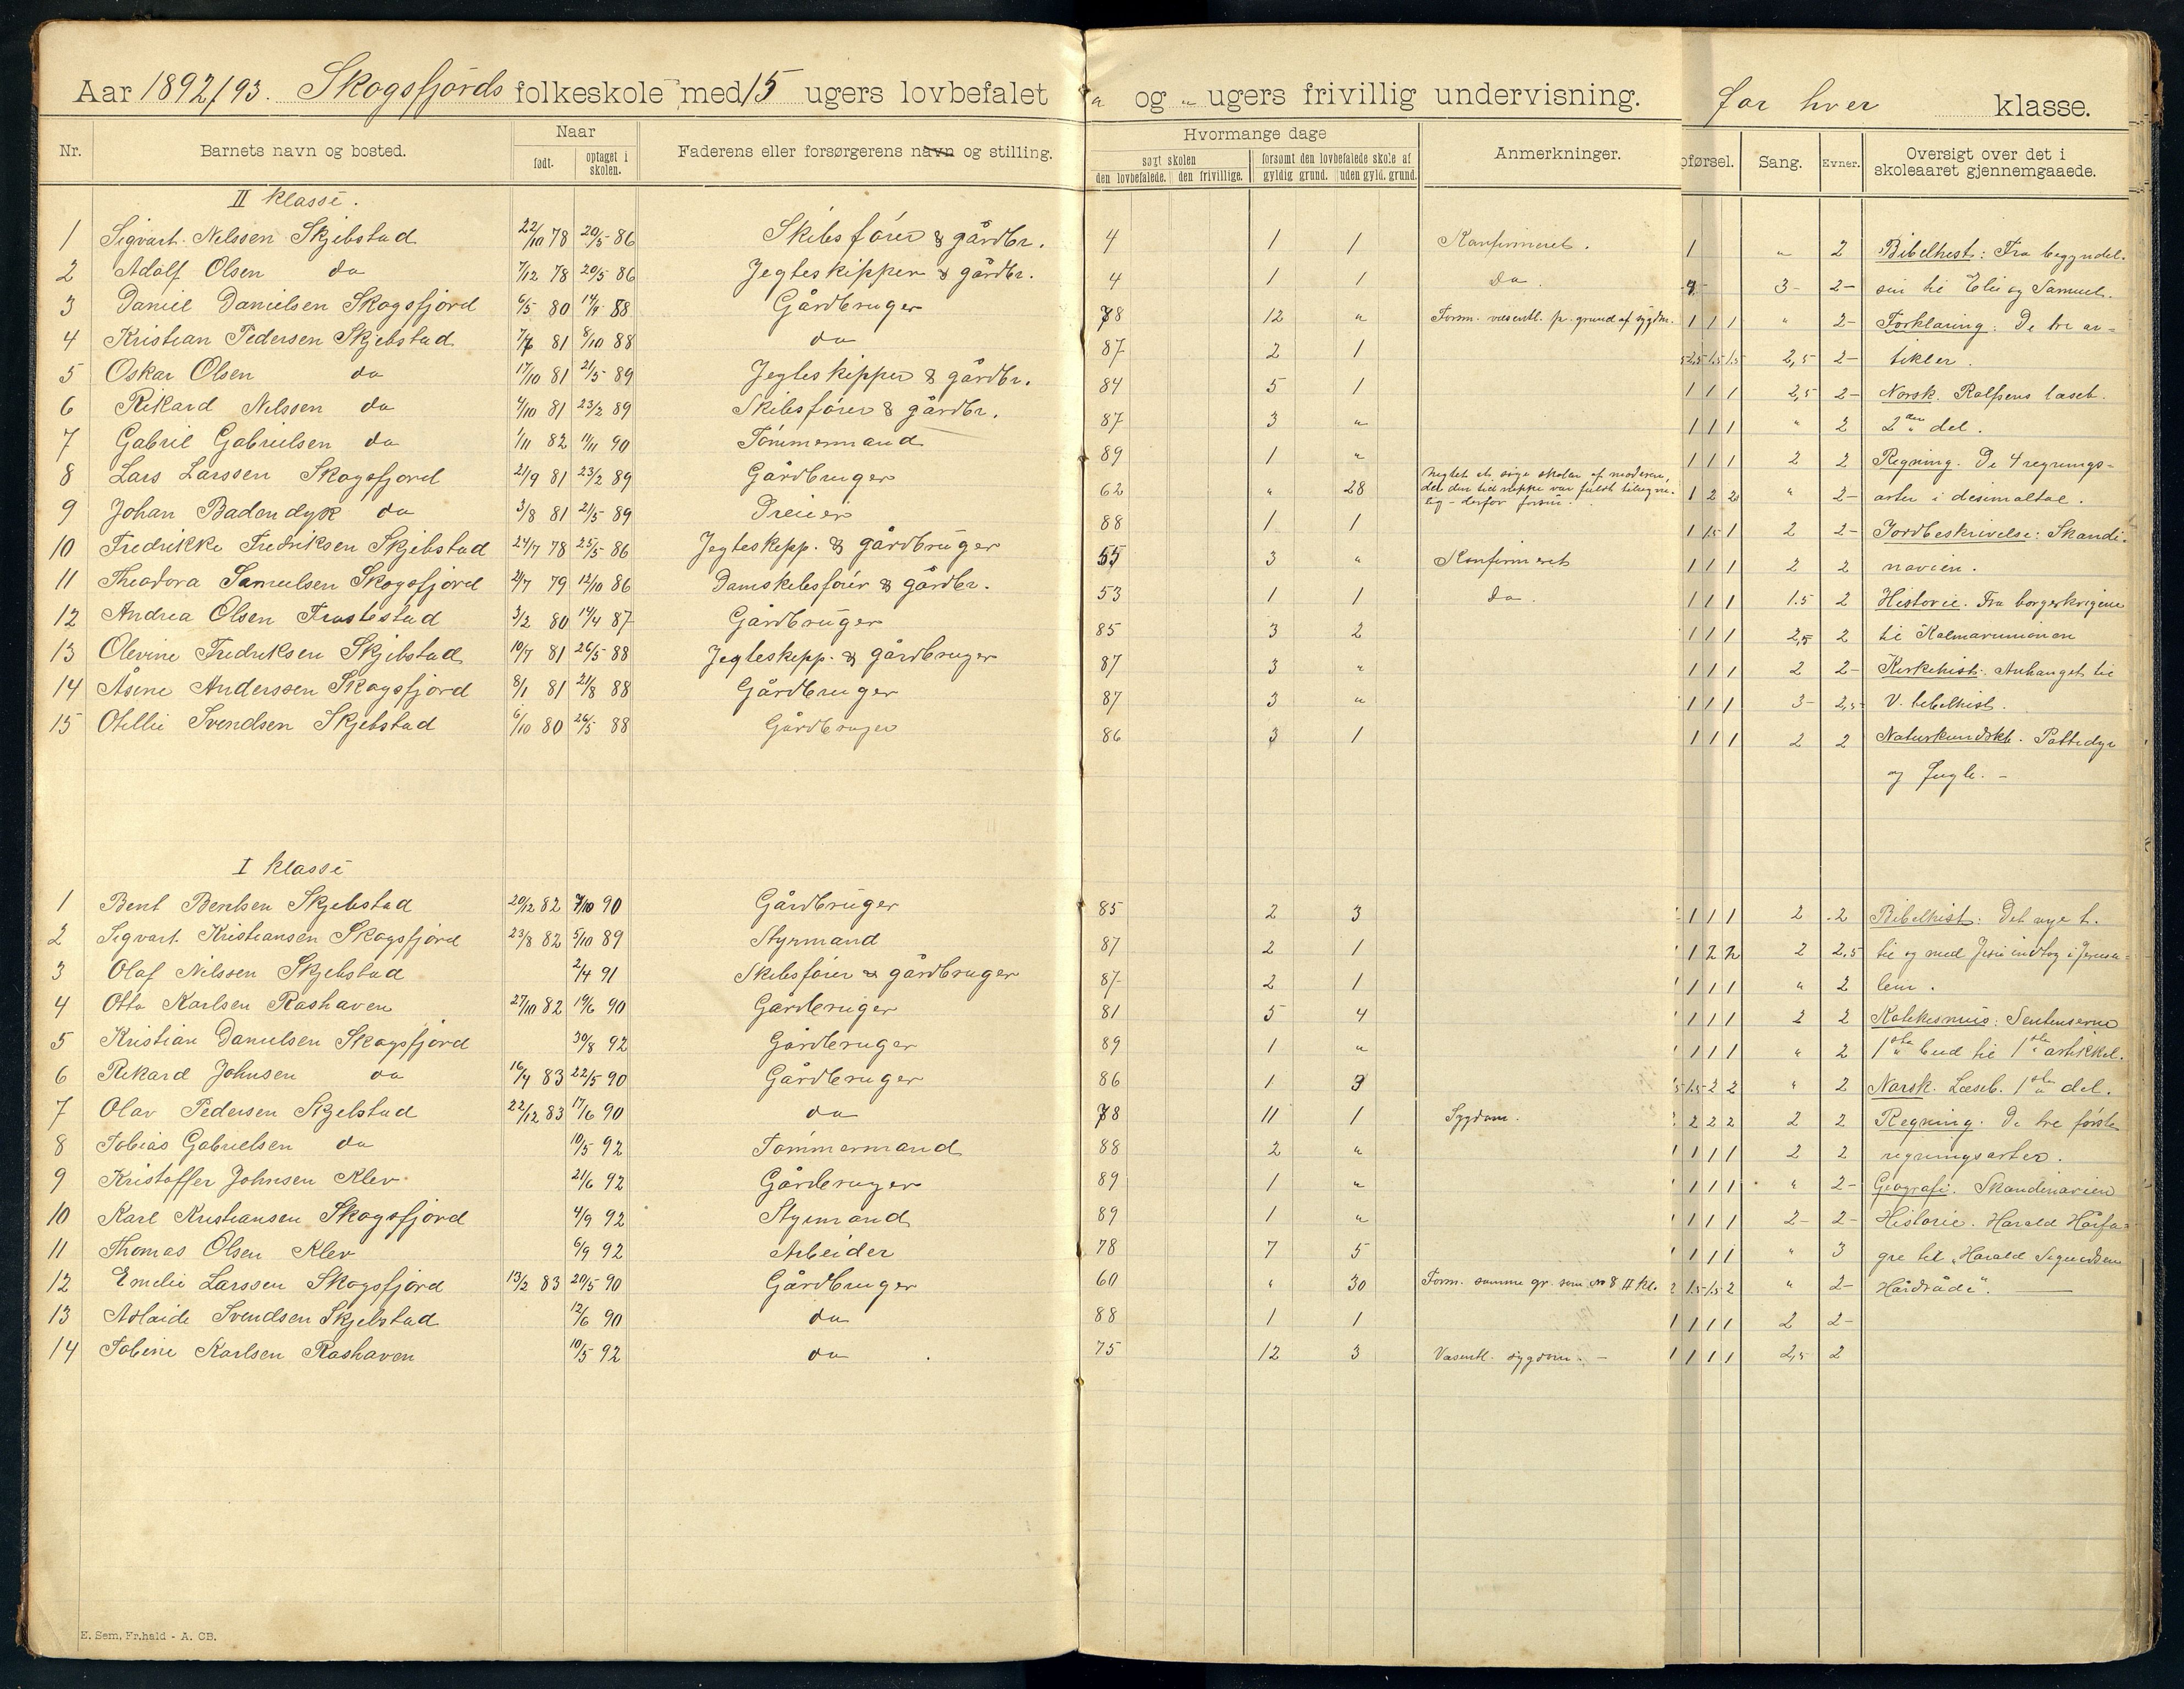 Aar 1892/93. Skogsfjords folkeskole med 15 ugers lovbefalet " og " ugers frivillig undervisning. for hver klasse.
Nr. Barnets navn og bosted. Naar Faderens eller forsørgerens navn og stilling. Hvormange dage Anmerkninger. pførsel. Sang. Evner. Oversigt over det i
født. optaget i skolen. søgt skolen forsømt den lovbefalede skole af skoleaaret gjennemgaaede.
den lovbefalede. den frivillige. gyldig grund. uden gyld. grund.
II klasse.
1 Sigvart Nilssen Skjebstad 22/10 78 20/5 86 Skibsfører & gårdbr. 4 1 1 Konfirmeret. 1 " 2 Bibelhist: Fra begyndel-
2 Adolf Olsen do 7/12 78 20/5 86 Jegteskipper & gårdbr. 4 1 1 do. 3- 2- sen til Eli og Samuel.
3 Daniel Danielsen Skogsfjord 6/5 80 14/9 88 Gårdbruger 78 12 " Forsm. væsentl. p. grund af sygdm. 1 1 1 " 2- Forklaring: De tre ar-
4 Kristian Pedersen Skjebstad 7/6 81 8/10 88 do 87 2 1 2,5 1,5 1,5 2,5 2- tikler.
5 Oskar Olsen do 17/10 81 21/5 89 Jegteskipper & gårdbr. 84 5 1 1 1 1 2,5 2- Norsk. Rolfsens læseb.
6 Rikard Nilssen do 4/10 81 23/2 89 Skibsfører & gårdbr. 87 3 " 1 1 1 " 2 2den del.
7 Gabriel Gabrielsen do 1/11 82 11/11 90 Tømmermand 89 1 " 1 1 1 2 2 Regning. De 4 regnings-
8 Lars Larssen Skogsfjord 21/9 81 23/2 89 Gårdbruger 62 " 28 Negtet at søge skolen af moderen, 1 2 2 " 2- arter i desimaltal.
9 Johan Badendyk do 3/8 81 21/5 89 Dreier 88 1 1 1 1,5 1 2 2- Jordbeskrivelse: Skandi-
10 Fredrikke Fredriksen Skjebstad 24/7 78 25/5 86 Jegteskipp. & gårdbruger 55 3 " Konfirmeret 1 1 1 2 2 navien.
11 Theodora Samuelsen Skogsfjord 2/7 79 12/10 86 Damskibsfører & gårdbr. 53 1 1 do. 1 1 1 1.5 2 Historie. Fra borgerkrigene
12 Andrea Olsen Trostestad 3/2 80 14/4 87 Gårdbruger 85 3 2 1 1 1 2,5 2 til Kalmarunionen
13 Olevine Fredriksen Skjebstad 10/7 81 26/5 88 Jegteskipp. & gårdbruger 87 3 " 1 1 1 2 2- Kirkehist. Anhanget til
14 Åsine Anderssen Skogsfjord 8/1 81 21/8 88 Gårdbruger 87 3 " 1 1 1 3- 2,5 V. bibelhist.
15 Otillie Svendsen Skjebstad 6/10 80 26/5 88 Gårdbruger 86 3 1 1 1 1 2 2 Naturkundskb. Pattedyr
og fugle. -
I klasse
1 Bent Bentsen Skjebstad 20/12 82 7/10 90 Gårdbruger 85 2 3 1 1 1 2 2 Bibelhist: Det nye t.
2 Sigvart Kristiansen Skogsfjord 23/8 82 5/10 89 Styrmand 87 2 1 1 2 2 2 2,5 til og med Jesu indtog i Jerusa-
3 Olaf Nilssen Skjebstad 2/4 91 Skibsfører & gårdbruger 87 2 1 1 1 1 " 2 lem.
4 Otto Karlsen Roshaven 27/10 82 19/6 90 Gårdbruger 81 5 4 1 1 1 2 2 Katekismus: Sentenserne
5 Kristian Danielsen Skogsfjord 30/8 92 Gårdbruger 89 1 " 1 1 1 " 2 1ste bud til 1ste artikkel.
6 Rikard Johnsen do 16/4 83 22/5 90 Gårdbruger 86 1 3 1,5 2 2 " 2 Norsk. Læseb. 1ste del.
7 Olav Pedersen Skjebstad 22/12 83 17/6 90 do 78 11 1 Sygdom. 2 2 2 2 2 Regning. De tre første
8 Tobias Gabrielsen do 10/5 92 Tømmermand 88 2 " 1 1 1 2 2 regningsarter.
9 Kristoffer Johnsen Klev 21/6 92 Gårdbruger 89 1 " 1 1 1 " 2- Geografi. Skandinavien
10 Karl Kristiansen Skogsfjord 4/9 92 Styrmand 89 1 " 1 1 1 2- 2- Historie. Harald Hårfa-
11 Thomas Olsen Klev 6/9 92 Arbeider 78 7 5 1 1 1 " 3 gre til „Harald Sigurdsen
12 Emelie Larssen Skogsfjord 13/2 83 20/5 90 Gårdbruger 60 " 30 Forsm. samme gr. som No 8 II kl. 1,5 1,5 2 " 2- Hårdråde".
13 Adlaide Svendsen Skjebstad 12/6 90 do 88 1 1 1 1 1 2 2-
14 Tobine Karlsen Roshaven 10/5 92 do 75 12 3 Væsentl. sygdom. - 1 1 1 2,5 2
E. Sem, Fr.hald - A. CB.